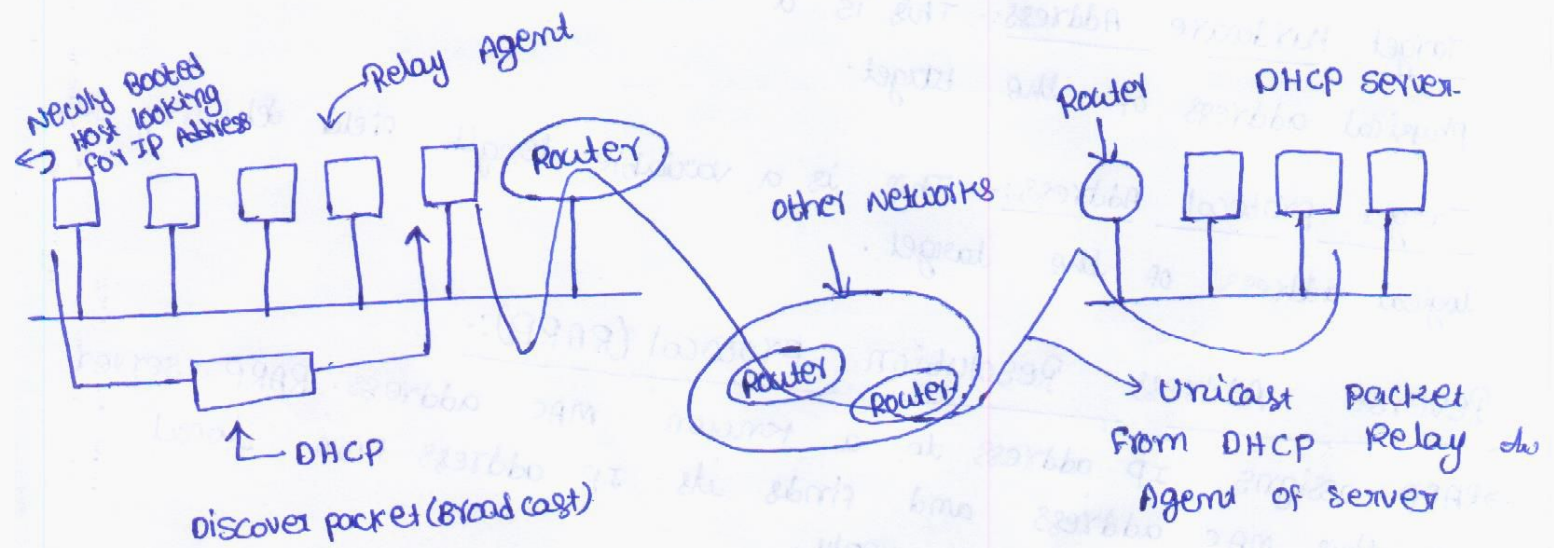 Relay Agent
Newly Booted
Host looking
for IP Address
Router
Router
DHCP server
other Networks
Router
Router
DHCP
Discover packet (Broadcast)
Unicast packet
From DHCP Relay
Agent of server